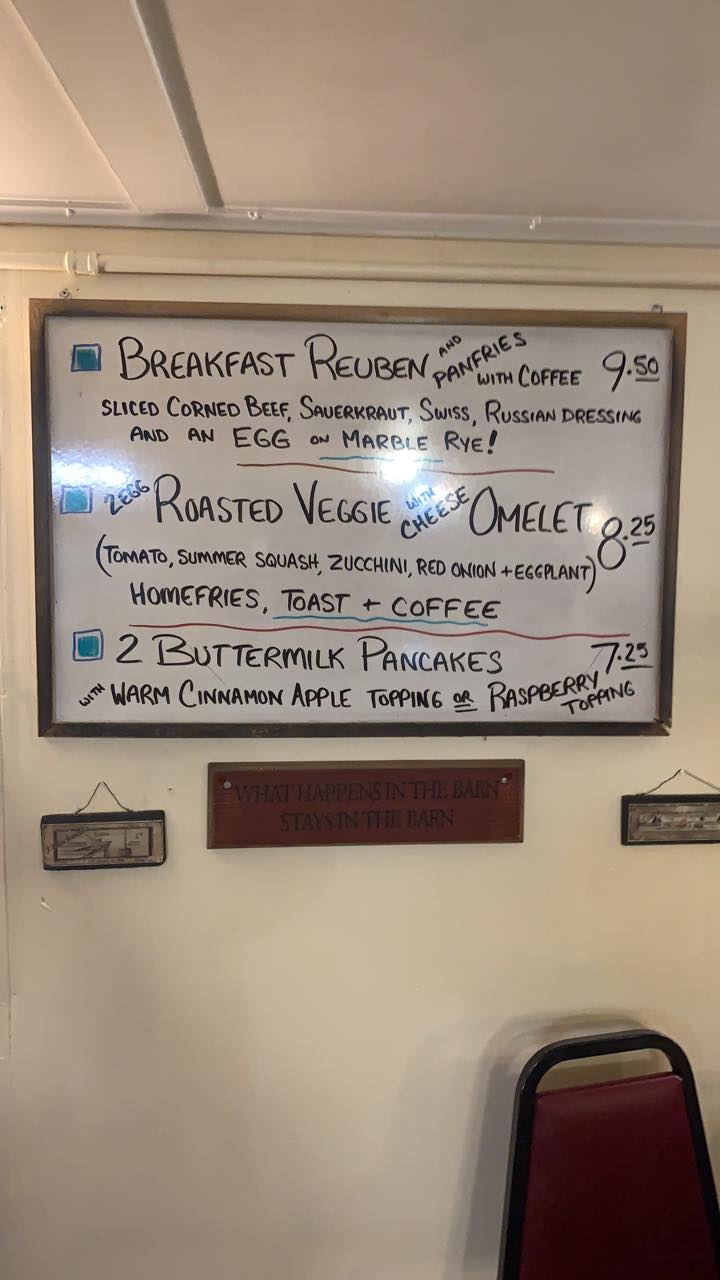 BREAKFAST REUBEN AND PANFRIES WITH COFFEE 9.50
SLICED CORNED BEEF, SAUERKRAUT, SWISS, RUSSIAN DRESSING
AND AN EGG ON MARBLE RYE!
2 EGG ROASTED VEGGIE WITH CHEESE OMELET 8.25
(TOMATO, SUMMER SQUASH, ZUCCHINI, RED ONION + EGGPLANT)
HOMEFRIES, TOAST + COFFEE
2 BUTTERMILK PANCAKES 7.25
WITH WARM CINNAMON APPLE TOPPING OR RASPBERRY TOPPING
WHAT HAPPENS IN THE BARN
STAYS IN THE BARN